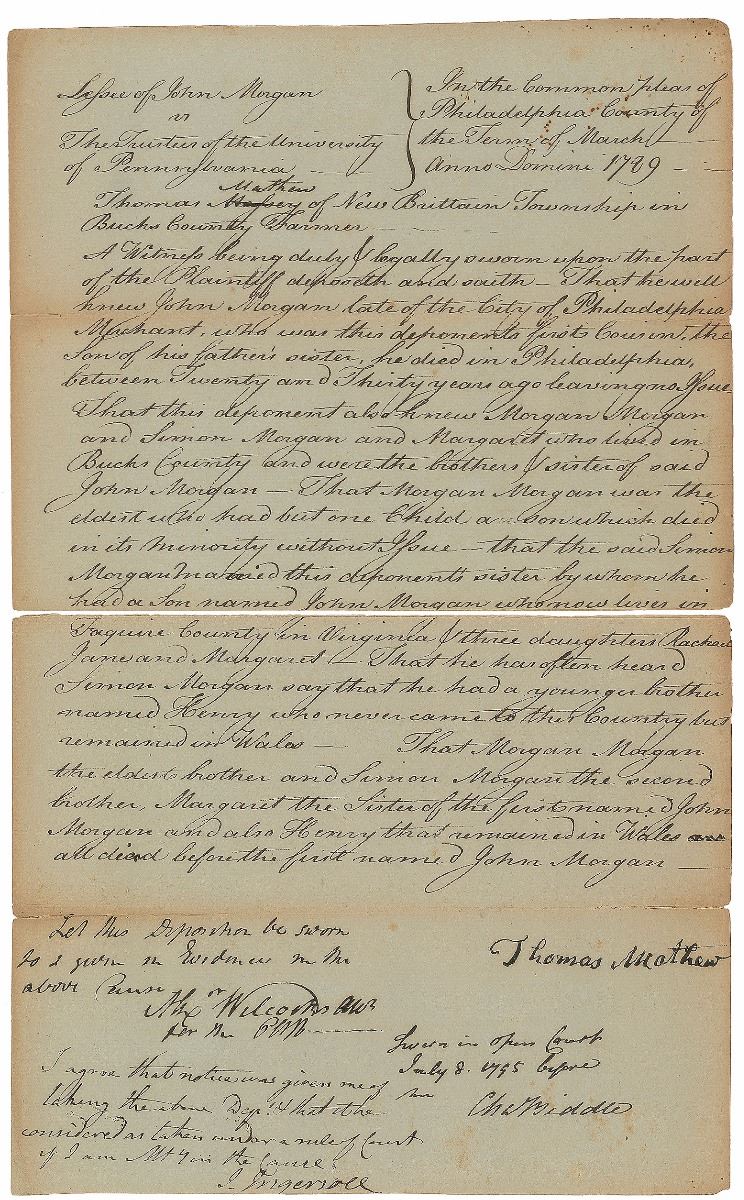 Lessee of John Morgan
vs
The Trustees of the University
of Pennsylvania
In the Common pleas of
Philadelphia County of
the Term of March
Anno Domini 1789
Mathew
Thomas of New Brittain Township in
Bucks County Farmer
A Witness being duly & legally sworn upon the part
of the Plaintiff deposeth and saith – That he well
knew John Morgan late of the City of Philadelphia
Merchant, who was this deponents first Cousin, the
Son of his father's sister, he died in Philadelphia,
between Twenty and Thirty years ago leaving no Issue
That this deponent also knew Morgan Morgan
and Simon Morgan and Margaret who lived in
Bucks County and were the brothers & sister of said
John Morgan – That Morgan Morgan was the
eldest who had but one Child a son which died
in its minority without Issue – that the said Simon
Morgan married this deponent's sister by whom he
had a Son named John Morgan who now lives in
Faquire County in Virginia & three daughters Rachael
Jane and Margaret – That he has often heard
Simon Morgan say that he had a younger brother
named Henry who never came to this Country but
remained in Wales – That Morgan Morgan
the eldest brother and Simon Morgan the second
brother, Margaret the Sister of the first named John
Morgan and also Henry that remained in Wales
all died before the first named John Morgan –
Let this Deposition be sworn
to & given in Evidence in the
above Cause
Alexr Wilcocks
for the
Thomas Mathew
Sworn in open Court
July 8. 1795 before
me
Chas Biddle
I agree that notice was given me of
taking the above Dep. & that it be
considered as taken under a rule of Court
if I am Atty in the Cause
J. Ingersoll